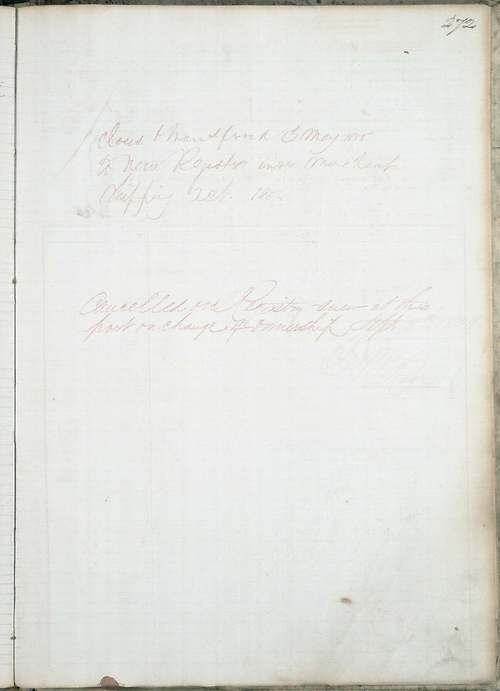 272
Closed & transferred 3 May
to New Register under Merchant
Shipping Act. 18
Cancelled on Registry anew at this
port on change of ownership Sept